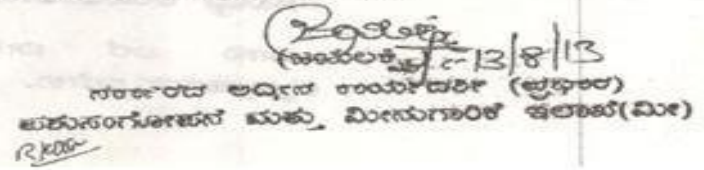 (ಜಯಲಕ್ಷ್ಮಿ) 13/8/13
ಸರ್ಕಾರದ ಅಧೀನ ಕಾರ್ಯದರ್ಶಿ (ಪ್ರಭಾರ)
ಪಶುಸಂಗೋಪನೆ ಮತ್ತು ಮೀನುಗಾರಿಕೆ ಇಲಾಖೆ(ಮೀ)